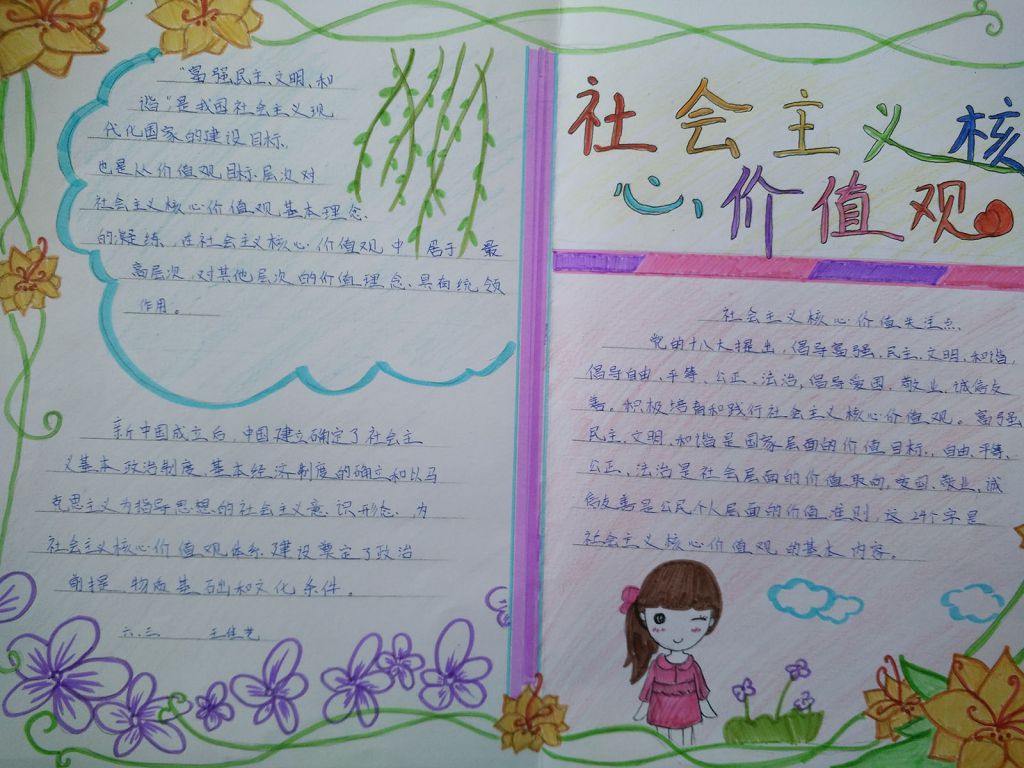 社会主义核
心价值观
"富强民主、文明、和
谐"是我国社会主义现
代化国家的建设目标、
也是从价值观目标层次对
社会主义核心价值观基本理念、
的凝练、在社会主义核心价值观中居于最
高层次,对其他层次的价值理念、具有统领
作用。
新中国成立后,中国建立确定了社会主
义基本政治制度、基本经济制度的确立和以马
克思主义为指导思想的社会主义意、识形态、为
社会主义核心价值观体系建设奠定了政治
前提、物质基础和文化条件。
六.三 王佳艺
社会主义核心价值关注点、
党的十八大提出,倡导富强、民主、文明、和谐,
倡导自由、平等、公正、法治,倡导爱国、敬业、诚信友
善。积极培育和践行社会主义核心价值观。富强
民主、文明、和谐是国家层面的价值目标,自由、平等、
公正、法治是社会层面的价值取向,爱国、敬业、诚
信友善是公民个人层面的价值准则,这24个字是
社会主义核心价值观的基本内容。